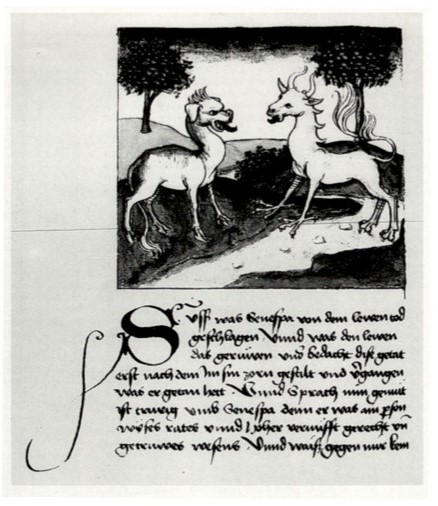 SVsß was Senespa von dem lewen tod
geschlagen Vnnd was den lewen
das geruwen vnd bedacht dise getat
erst nach dem Im sin zorn gestilt vnd v̄gangen
was er getan hett Vnnd sprach min gemüt
ist trurig vmb Senespa denn er was ain pson
wyses rates vnnd hoher vernufft gerecht vn̄
getruwes wesens Vnnd waiß gegen mir kein